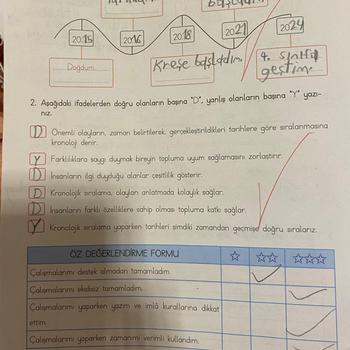 başladım
2015
2016
2018
2021
2024
Doğdum.
Kreşe başladım.
4. sınıfa
geçtim.
2. Aşağıdaki ifadelerden doğru olanların başına "D", yanlış olanların başına "Y" yazı-
nız.
D Önemli olayların, zaman belirtilerek, gerçekleştirildikleri tarihlere göre sıralanmasına
kronoloji denir.
Y Farklılıklara saygı duymak bireyin topluma uyum sağlamasını zorlaştırır.
D İnsanların ilgi duyduğu alanlar çeşitlilik gösterir.
D Kronolojik sıralama, olayları anlatmada kolaylık sağlar.
D İnsanların farklı özelliklere sahip olması topluma katkı sağlar.
Y Kronolojik sıralama yaparken tarihleri şimdiki zamandan geçmişe doğru sıralarız.
ÖZ DEĞERLENDİRME FORMU
Çalışmalarımı destek almadan tamamladım.
Çalışmalarımı eksiksiz tamamladım.
Çalışmalarımı yaparken yazım ve imlâ kurallarına dikkat
ettim.
Çalışmalarımı yaparken zamanımı verimli kullandım.